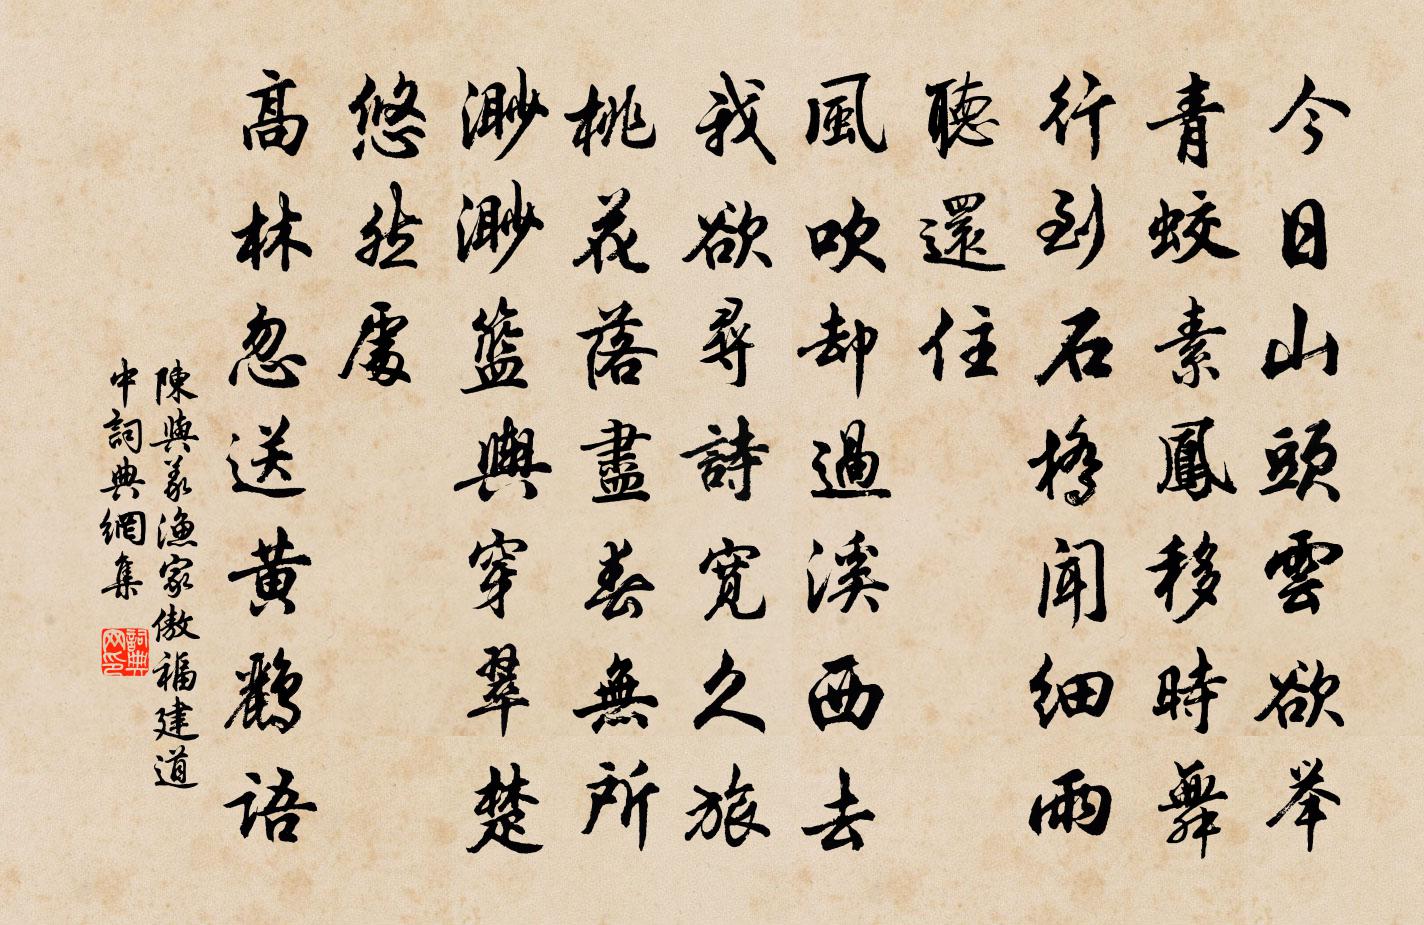 今日山頭雲欲举
青蛟素鳳移時舞
行到石橋聞细雨
聽還住
風吹却過溪西去
我欲尋詩寬久旅
桃花落盡春無所
渺渺籃輿穿翠楚
悠然處
高林忽送黄鸝語
陳與義漁家傲福建道
中詞典網集
詞典
网印